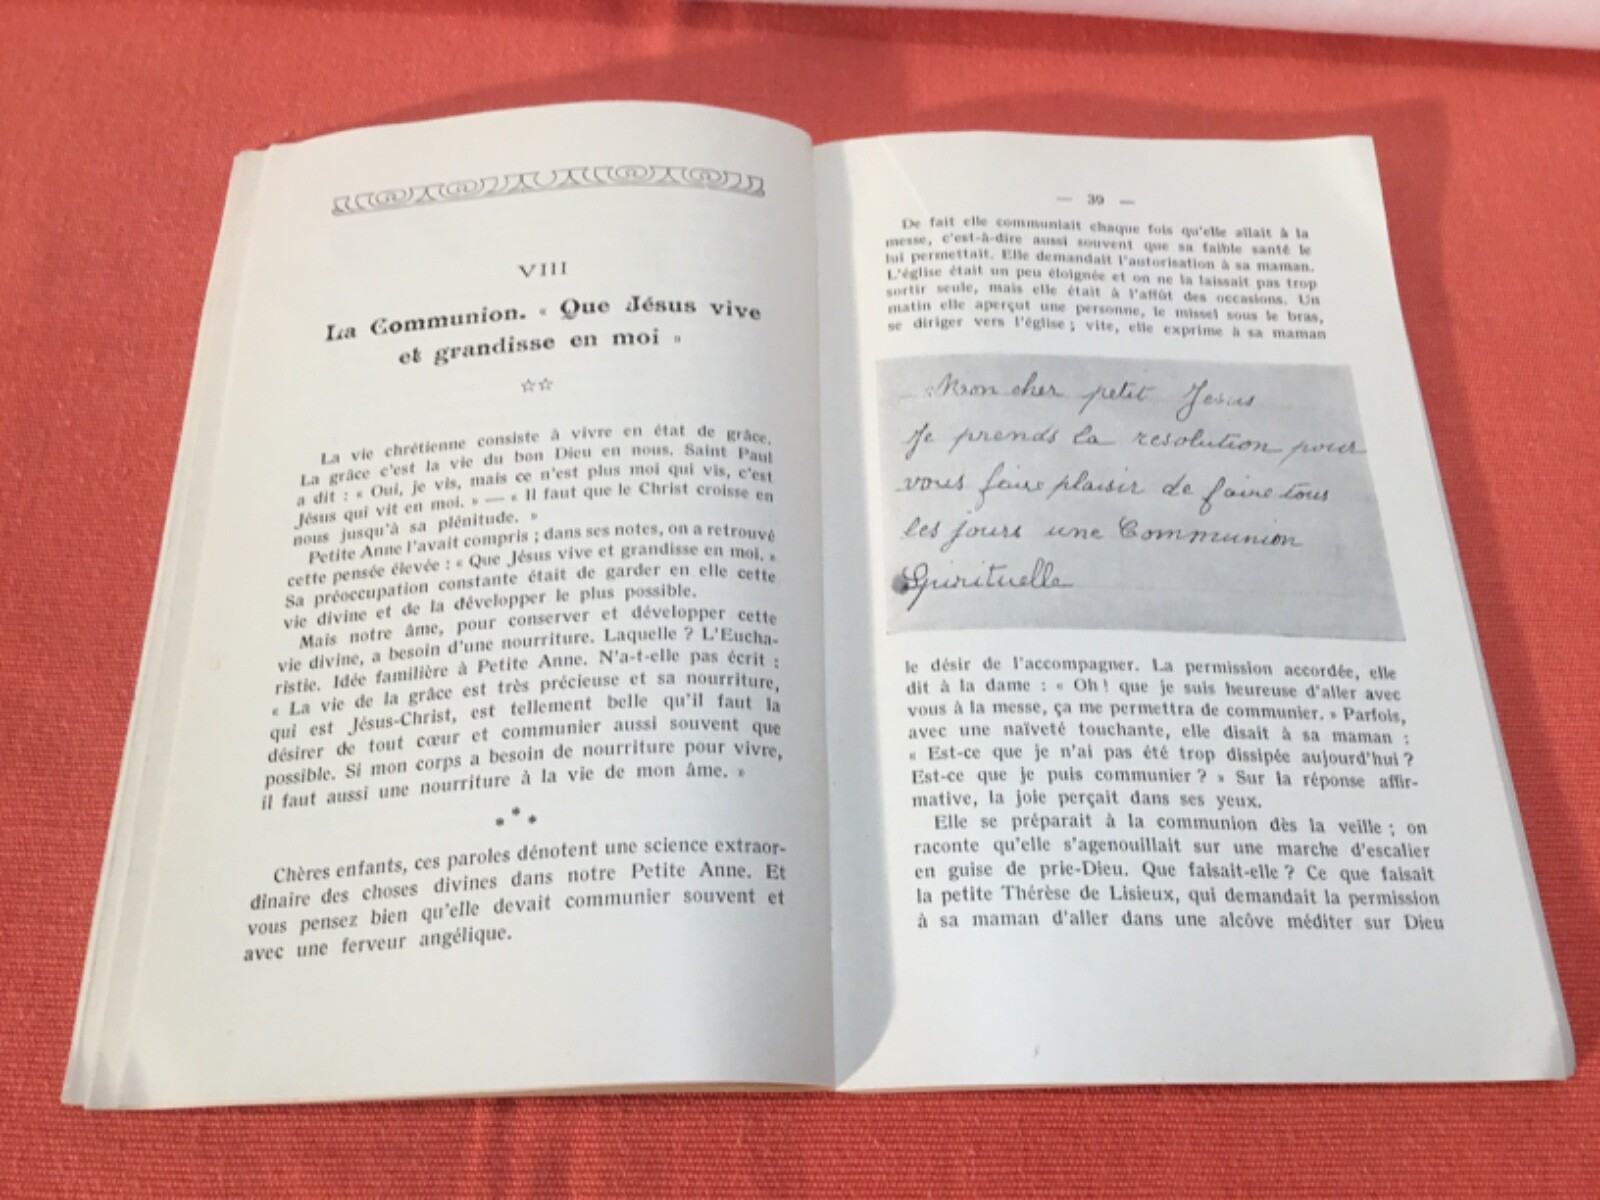 VIII
La Communion. « Que Jésus vive
et grandisse en moi »
☆☆
La vie chrétienne consiste à vivre en état de grâce.
La grâce c'est la vie du bon Dieu en nous. Saint Paul
a dit : « Oui, je vis, mais ce n'est plus moi qui vis, c'est
Jésus qui vit en moi. » — « Il faut que le Christ croisse en
nous jusqu'à sa plénitude. »
Petite Anne l'avait compris ; dans ses notes, on a retrouvé
cette pensée élevée : « Que Jésus vive et grandisse en moi. »
Sa préoccupation constante était de garder en elle cette
vie divine et de la développer le plus possible.
Mais notre âme, pour conserver et développer cette
vie divine, a besoin d'une nourriture. Laquelle ? L'Eucha-
ristie. Idée familière à Petite Anne. N'a-t-elle pas écrit :
« La vie de la grâce est très précieuse et sa nourriture,
qui est Jésus-Christ, est tellement belle qu'il faut la
désirer de tout cœur et communier aussi souvent que
possible. Si mon corps a besoin de nourriture pour vivre,
il faut aussi une nourriture à la vie de mon âme. »
* * *
Chères enfants, ces paroles dénotent une science extraor-
dinaire des choses divines dans notre Petite Anne. Et
vous pensez bien qu'elle devait communier souvent et
avec une ferveur angélique.
— 39 —
De fait elle communiait chaque fois qu'elle allait à la
messe, c'est-à-dire aussi souvent que sa faible santé le
lui permettait. Elle demandait l'autorisation à sa maman.
L'église était un peu éloignée et on ne la laissait pas trop
sortir seule, mais elle était à l'affût des occasions. Un
matin elle aperçut une personne, le missel sous le bras,
se diriger vers l'église ; vite, elle exprime à sa maman
Mon cher petit Jesus
Je prends la resolution pour
vous faire plaisir de faire tous
les jours une Communion
Spirituelle
le désir de l'accompagner. La permission accordée, elle
dit à la dame : « Oh ! que je suis heureuse d'aller avec
vous à la messe, ça me permettra de communier. » Parfois,
avec une naïveté touchante, elle disait à sa maman :
« Est-ce que je n'ai pas été trop dissipée aujourd'hui ?
Est-ce que je puis communier ? » Sur la réponse affir-
mative, la joie perçait dans ses yeux.
Elle se préparait à la communion dès la veille ; on
raconte qu'elle s'agenouillait sur une marche d'escalier
en guise de prie-Dieu. Que faisait-elle ? Ce que faisait
la petite Thérèse de Lisieux, qui demandait la permission
à sa maman d'aller dans une alcôve méditer sur Dieu